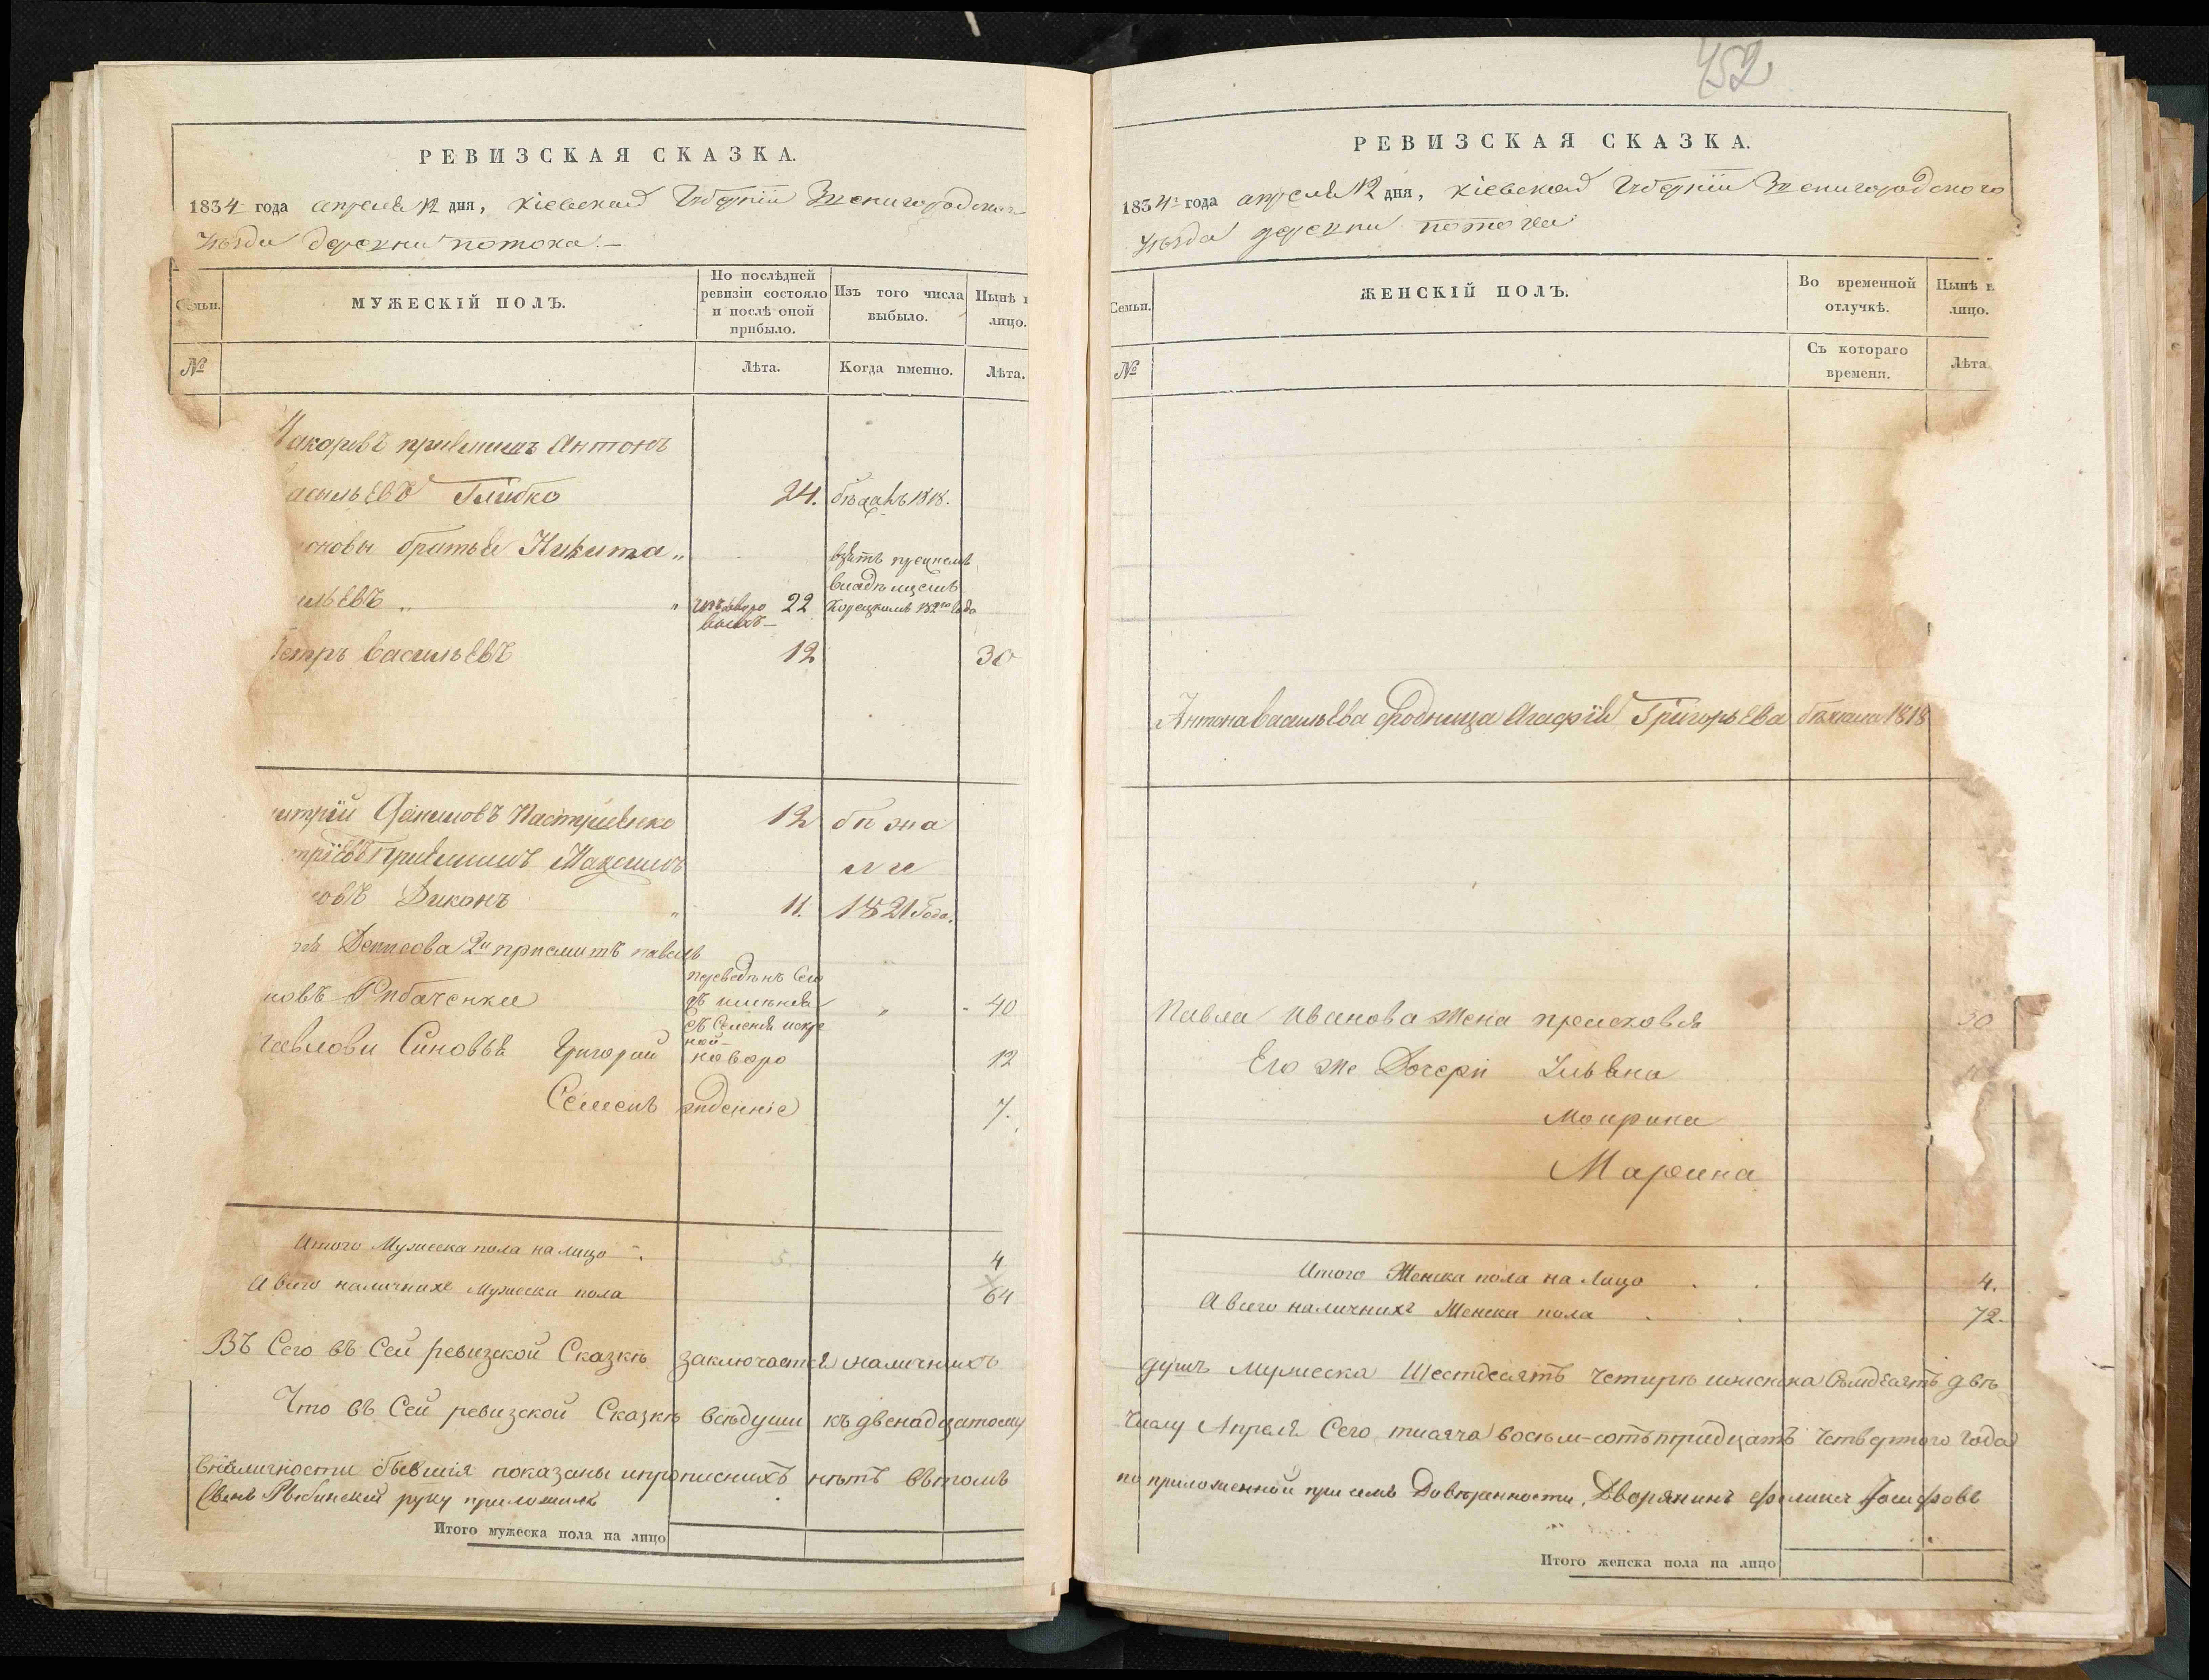 452
РЕВИЗСКАЯ СКАЗКА.
1834 года апреля 12 дня, Кіевской Губерніи Звенигородскаго
Уѣзда деревни Потока.-
Семьи.
МУЖЕСКІЙ ПОЛЪ.
По послѣдней ревизіи состояло и послѣ оной прибыло.
Изъ того числа выбыло.
Нынѣ
лицо.
№
Лѣта.
Когда именно.
Лѣта.
Макаровъ приемишъ Антонъ
асильевъ Глибко 24. 1818.
оновы братья Никита „
взятъ
владѣлцемъ
ильевъ „ „ 22 Корецкимъ
Петръ Васильевъ 12 30
митрій 12 бѣжа
Максимъ ли
овъ Диконъ „ 11. 1821 Года.
Денисова 2й приемитъ павелъ
новъ Рибаченко
переведѣнъ
имѣнія „ 40
Павлови Синовья Григорий новоро 12
Семенъ жденніе 7.
Итого Мужеска пола на лицо 4
А всего наличнихъ Мужеска пола 64
Въ Сего въ Сей ревизской Сказкѣ заключается наличнихъ
Что въ Сей ревизской Сказкѣ всѣ души къ двенадцатому
вналичности бывшія показаны ипрописнихъ нѣтъ вътомъ
Рыбинский руку приложилъ
Итого мужеска пола на лицо
РЕВИЗСКАЯ СКАЗКА.
1834 года апреля 12 дня, Кіевской Губерніи Звенигородского
Уѣзда деревни потока
Семьи.
ЖЕНСКІЙ ПОЛЪ.
Во временной отлучкѣ.
Нынѣ
лицо.
№
Съ котораго времени.
Лѣта
Антона Васильева Агафія Григорьева бѣжала 1818
Павла Иванова жена прасковья 30
Его же Дочери Ульяна
Маврина
Марина
Итого Женска пола на Лицо 4.
А всего наличнихъ Женска пола 72.
душъ Мужеска Шестдесятъ четирѣ иженска Семдесятъ двѣ
Числу Апреля Сего тисяча восѣм-сотъ тридцатъ Четвертого Года
по приложенной при семъ Довѣранности, Дворянинъ Феликсъ Іосифовъ
Итого женска пола на лицо